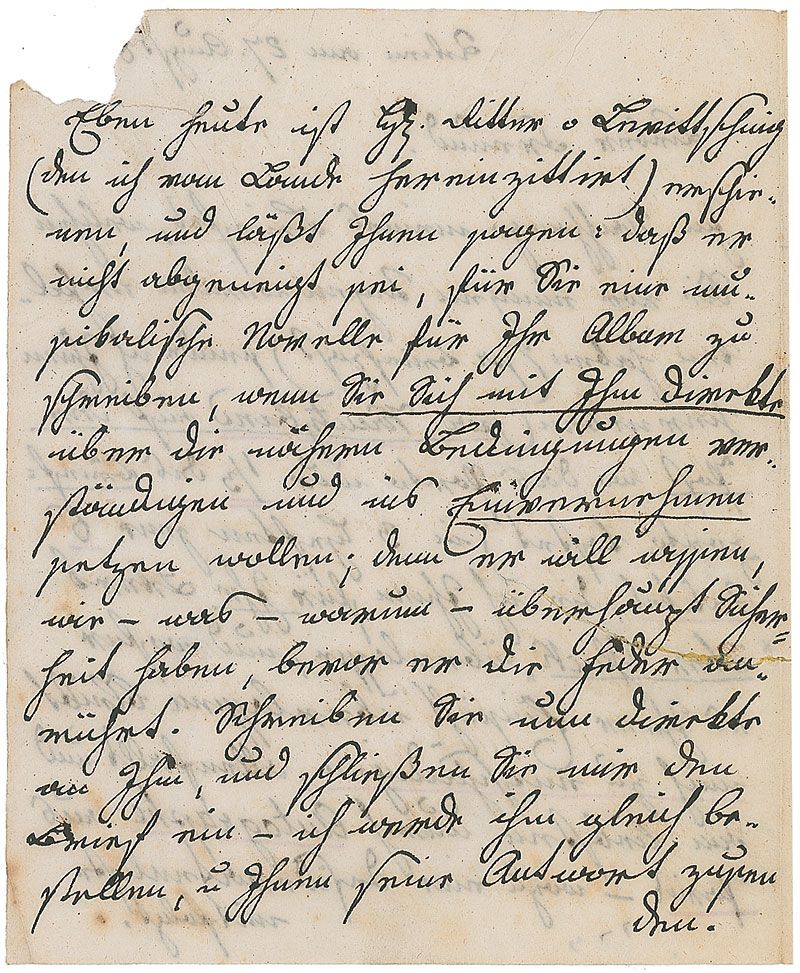 Eben heute ist H. Ritter v Levitschnig
(den ich vom Lande hereinzittirt) erschie-
nen, und läßt Ihnen sagen: daß er
nicht abgeneigt sei, für Sie eine mu-
sikalische Novelle für Ihr Album zu
schreiben, wenn Sie Sich mit Ihm direkte
über die nähern Bedingungen ver-
ständigen und ins Einvernehmen
setzen wollen; denn er will wissen,
wie – was – warum – überhaupt Sicher-
heit haben, bevor er die Feder an-
rührt. Schreiben Sie nun direkte
an Ihm, und schließen Sie mir den
Brief ein – ich werde ihn gleich be-
stellen, u Ihnen seine Antwort zusen
den.